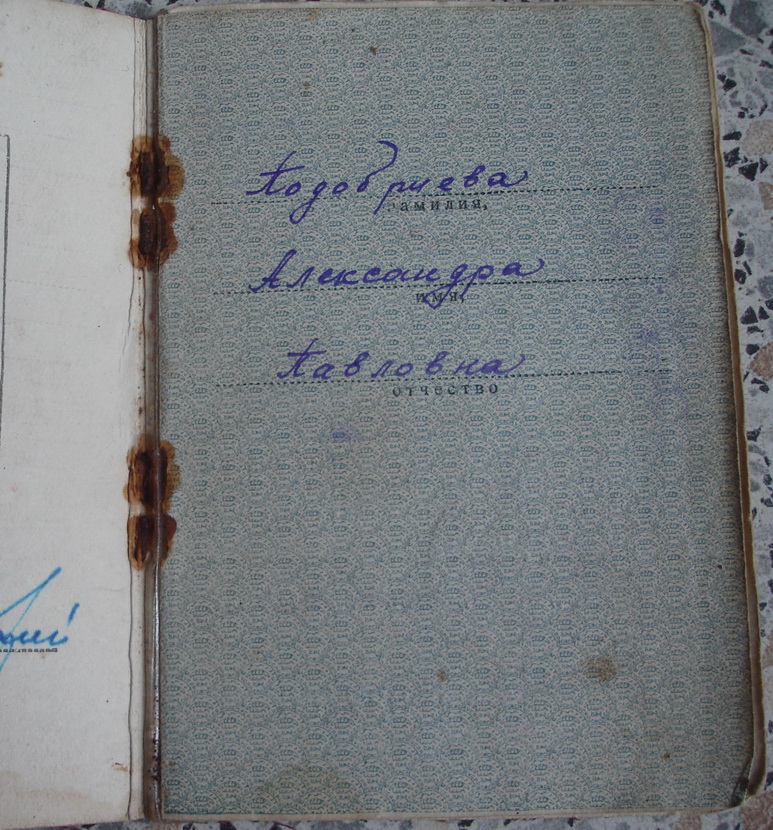 Подобриева
фамилия,
Александра
имя,
Павловна
отчество